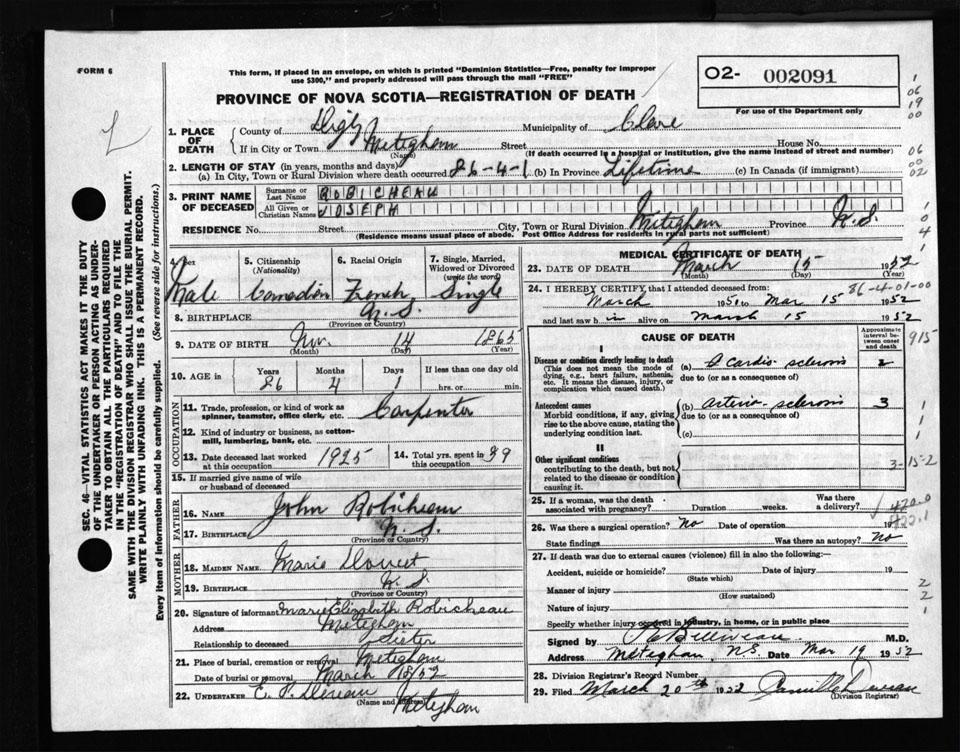 FORM 6
This form, if placed in an envelope, on which is printed "Dominion Statistics—Free, penalty for improper
use $300," and properly addressed will pass through the mail "FREE"
O2- 002091
For use of the Department only
PROVINCE OF NOVA SCOTIA—REGISTRATION OF DEATH
1. PLACE OF DEATH
County of Digby Municipality of Clare
If in City or Town Meteghan Street House No.
(Name) (If death occurred in a hospital or institution, give the name instead of street and number)
2. LENGTH OF STAY (in years, months and days)
(a) In City, Town or Rural Division where death occurred 86-4-1 (b) In Province Lifetime (c) In Canada (if immigrant)
3. PRINT NAME OF DECEASED
Surname or Last Name ROBICHEAU
All Given or Christian Names JOSEPH
RESIDENCE No. Street City, Town or Rural Division Meteghan Province N.S.
(Residence means usual place of abode. Post Office Address for residents in rural parts not sufficient)
4. Sex Male
5. Citizenship (Nationality) Canadian
6. Racial Origin French
7. Single, Married, Widowed or Divorced (write the word) Single
8. BIRTHPLACE N.S.
(Province or Country)
9. DATE OF BIRTH Nov. 14 1865
(Month) (Day) (Year)
10. AGE in Years 86 Months 4 Days 1 If less than one day old
hrs. or min.
OCCUPATION
11. Trade, profession, or kind of work as spinner, teamster, office clerk, etc. Carpenter
12. Kind of industry or business, as cotton-mill, lumbering, bank, etc.
13. Date deceased last worked at this occupation 1925
14. Total yrs. spent in this occupation 39
15. If married give name of wife or husband of deceased
FATHER
16. NAME John Robicheau
17. BIRTHPLACE N.S.
(Province or Country)
MOTHER
18. MAIDEN NAME Marie
19. BIRTHPLACE N.S.
(Province or Country)
20. Signature of informant Marie Elizabeth Robicheau
Address Meteghan
Relationship to deceased Sister
21. Place of burial, cremation or removal Meteghan
Date of burial or removal March 18/52
22. UNDERTAKER
(Name and address) Meteghan
MEDICAL CERTIFICATE OF DEATH
23. DATE OF DEATH March 15 1952
(Month) (Day)
24. I HEREBY CERTIFY that I attended deceased from: 86-4-01-00
March 1951 to Mar 15 1952
and last saw h im alive on March 15 1952
CAUSE OF DEATH
Approximate interval between onset and death
915
I
Disease or condition directly leading to death (This does not mean the mode of dying, e.g., heart failure, asthenia, etc. It means the disease, injury, or complication which caused death.)
(a) Cardio-sclerosis 2
due to (or as a consequence of)
Antecedent causes
Morbid conditions, if any, giving rise to the above cause, stating the underlying condition last.
(b) Arterio-sclerosis 3
due to (or as a consequence of)
(c)
II
Other significant conditions
contributing to the death, but not related to the disease or condition causing it.
3-15-2
25. If a woman, was the death associated with pregnancy? Duration weeks. Was there a delivery?
420.0
422.1
26. Was there a surgical operation? No Date of operation 19
State findings Was there an autopsy? No
27. If death was due to external causes (violence) fill in also the following:—
Accident, suicide or homicide? Date of injury 19
(State which)
Manner of injury
(How sustained)
Nature of injury
Specify whether injury occurred in industry, in home, or in public place
Signed by M.D.
Address Meteghan, N.S. Date Mar 19 1952
28. Division Registrar's Record Number
29. Filed March 20th 1952
(Division Registrar)
SEC. 46—VITAL STATISTICS ACT MAKES IT THE DUTY
OF THE UNDERTAKER OR PERSON ACTING AS UNDER-
TAKER TO OBTAIN ALL THE PARTICULARS REQUIRED
IN THE "REGISTRATION OF DEATH" AND TO FILE THE
SAME WITH THE DIVISION REGISTRAR WHO SHALL ISSUE THE BURIAL PERMIT.
WRITE PLAINLY WITH UNFADING INK. THIS IS A PERMANENT RECORD.
Every item of information should be carefully supplied. (See reverse side for instructions.)